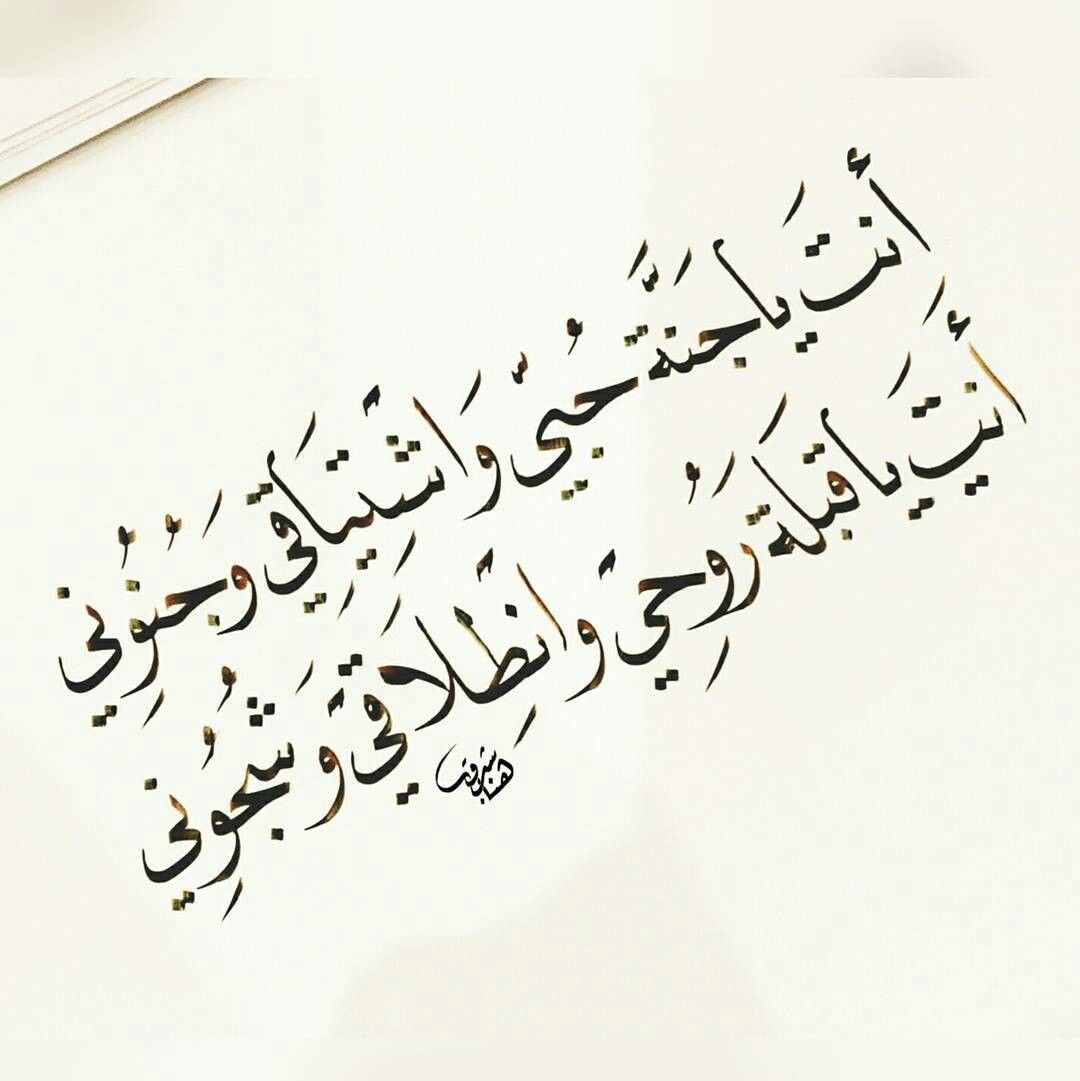 أَنتَ يَا جَنَّةَ حُبِّي وَاشْتِيَاقِي وَجُنُونِي
أَنتَ يَا قبلَة رُوحِي وَانْطِلَاقِي وَشُجُونِي